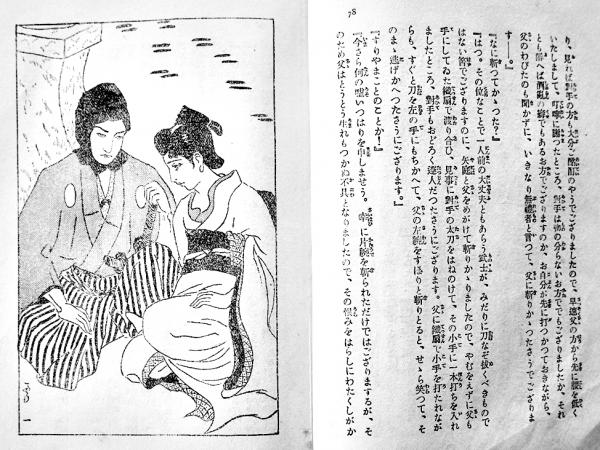 78
り、見れば對手の方も大分ご酩酊のやうでございましたので、早速父の方から先に腰を低く
いたしまして、叮嚀に謝つたところ、對手は物の分らないお方ででもございましたか、それ
とも醉へば酒亂の癖でもあるお方でございますのか、お自分が先に打つかつておきながら、
父のわびたのも聞かずに、いきなり無禮者と言つて、父に斬りかゝつたさうでございま
す――。』
『なに斬つてかゝつた？』
『はつ。その位なことで一人前の大丈夫ともあらう武士が、みだりに刀なぞ拔くべきもので
はない筈でござりますのに、矢庭と父をめがけて斬りかゝりましたので、やむをえずに父も
手にしてゐた鐵扇で渡り合ひ、見事に對手の太刀をはねのけて、その小手に一本打ちを入れ
ましたところ、對手もおどろく達人だつたさうにござります。父に鐵扇で小手を打たれなが
らも、すぐと刀を左の手にもちかへて、父の左腕をすぽりと斬りとると、せゝら笑つて、そ
のまゝ逃げかへつたさうにござります。』
『すりやまことのことか！』
『今さら何の嘘いつはりを申しませう。　に片腕を斬られただけではござりまするが、そ
のため父はとうとう生れもつかぬ不具となりましたので、その恨みをはらしにわたくしがか